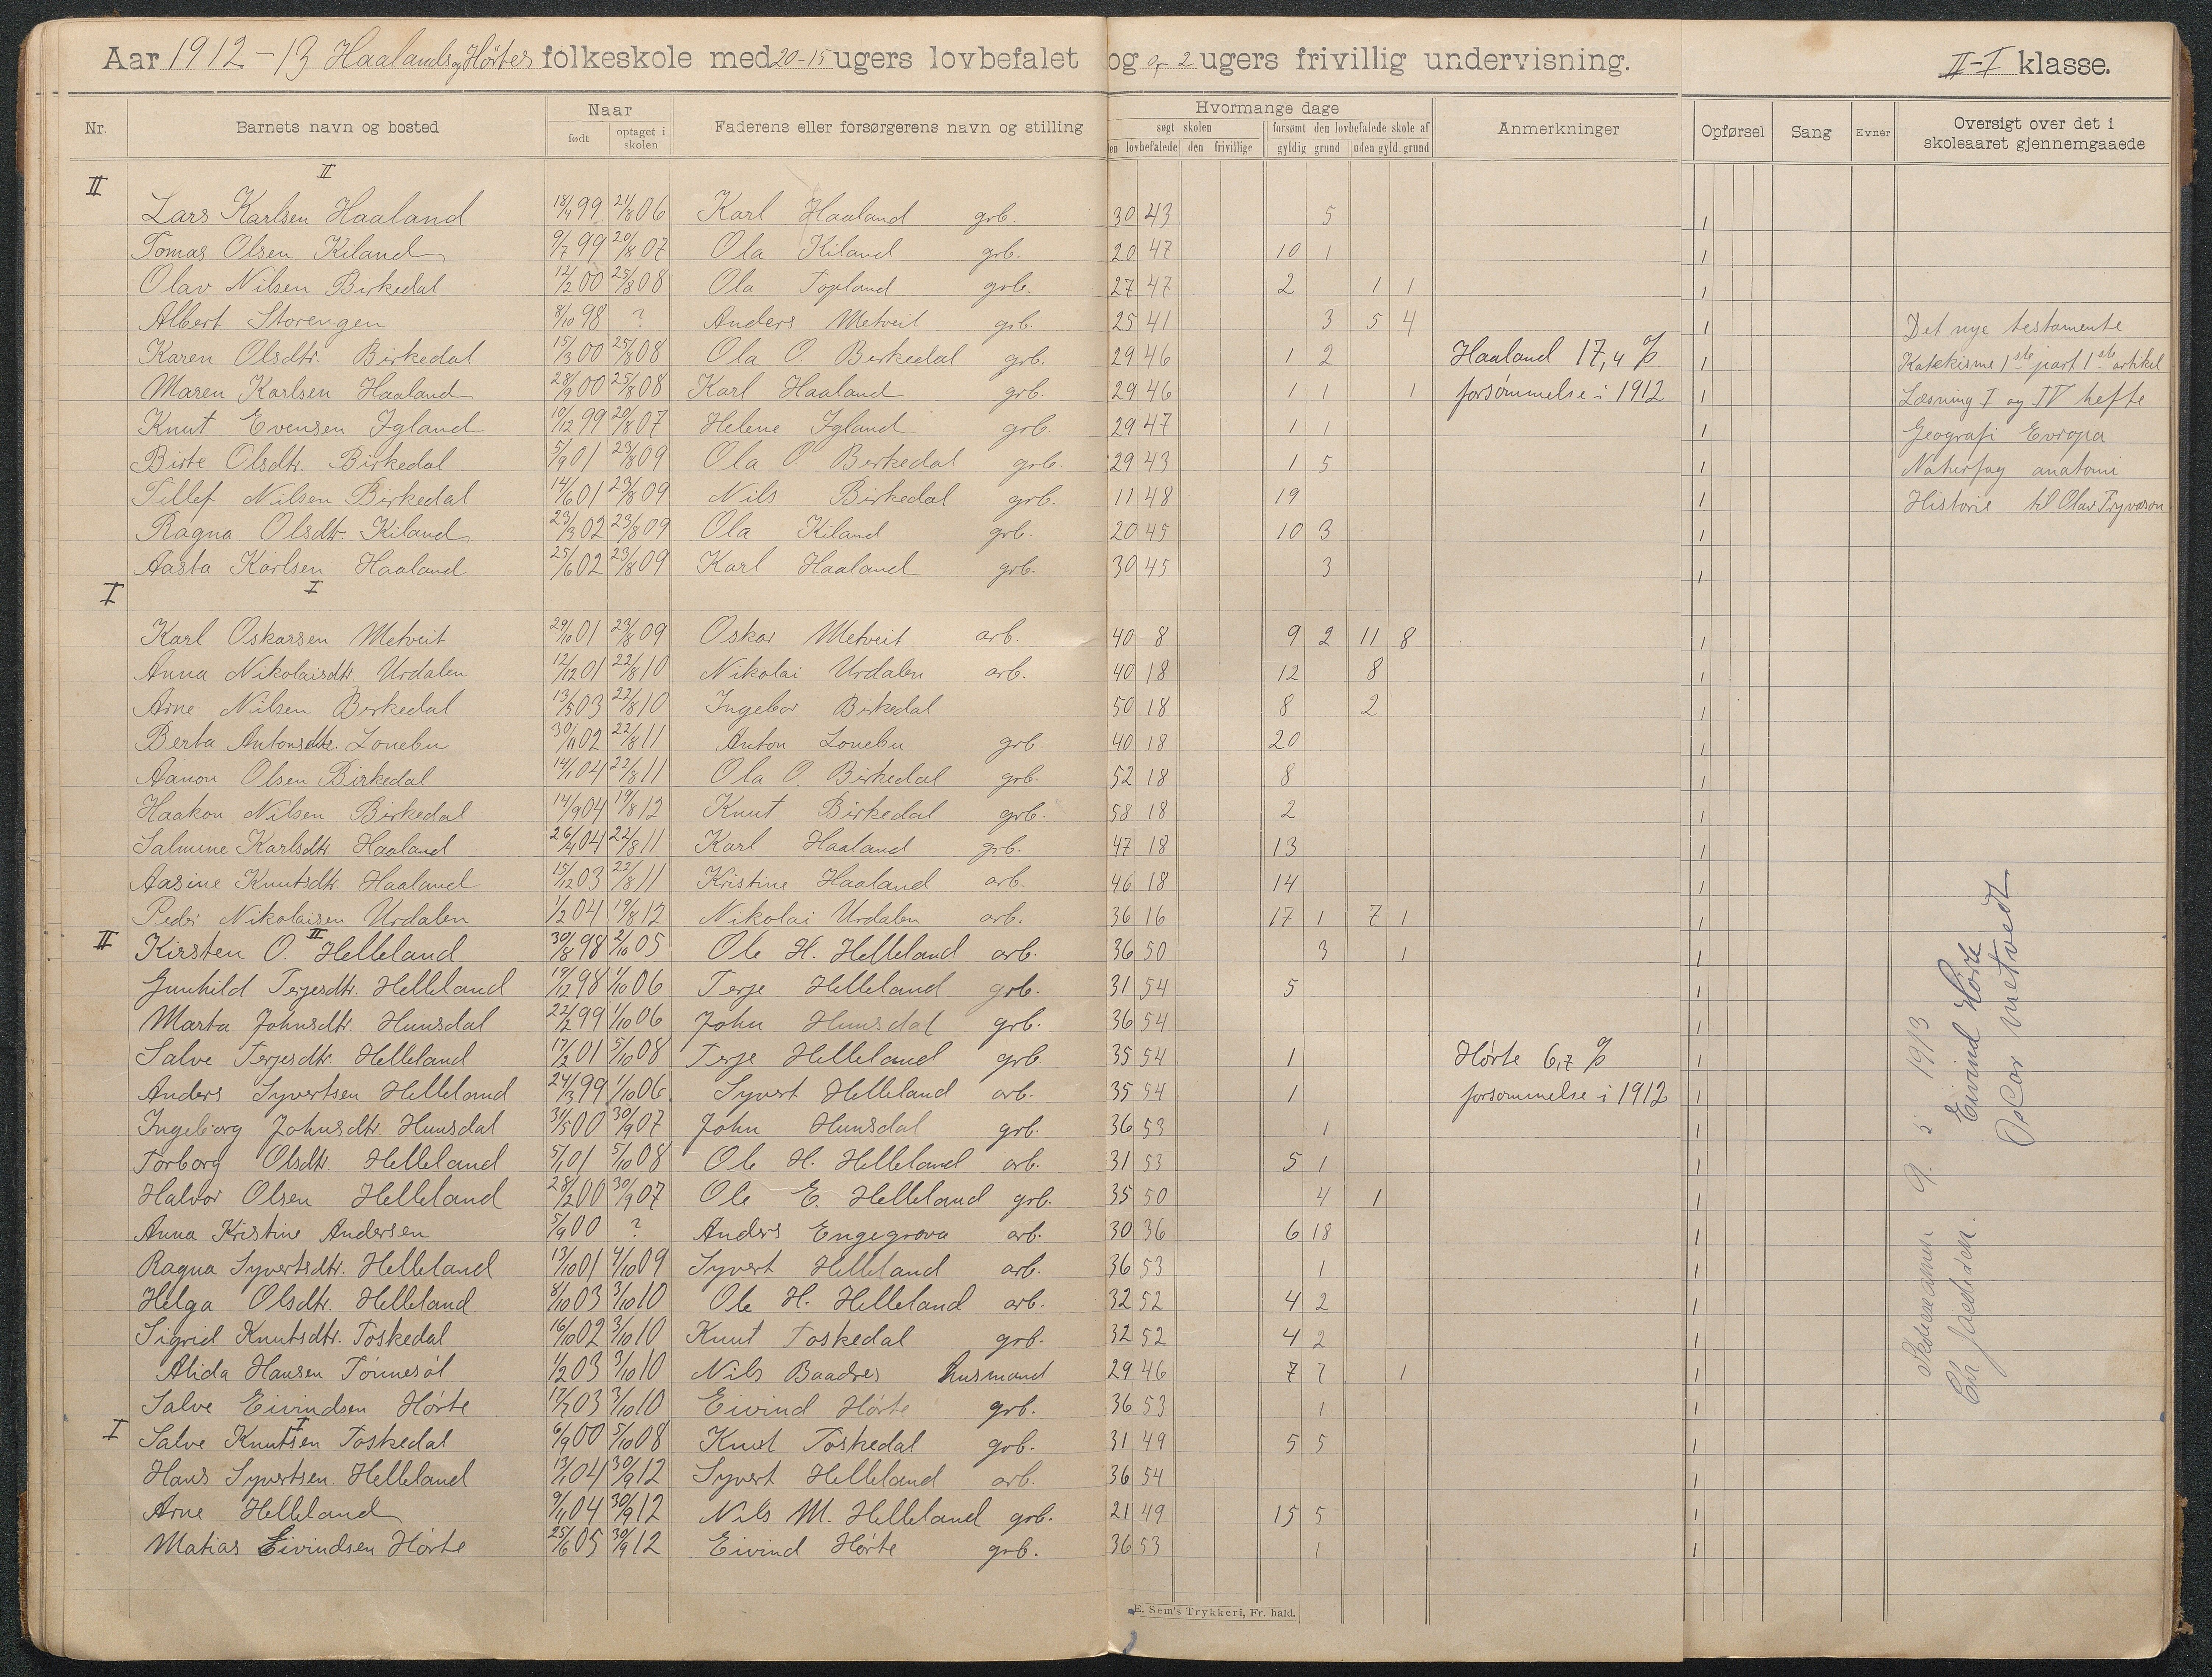 Aar 1912-13 Haalands og Hörtes folkeskole med 20-15 ugers lovbefalet og 0-2 ugers frivillig undervisning. II-I klasse.
Nr. Barnets navn og bosted Naar født optaget i skolen Faderens eller forsørgerens navn og stilling Hvormange dage søgt skolen den lovbefalede den frivillige forsømt den lovbefalede skole af gyldig grund uden gyld. grund Anmerkninger Opførsel Sang Evner Oversigt over det i skoleaaret gjennemgaaede
II II
Lars Karlsen Haaland 18/4 99 21/8 06 Karl Haaland grb. 30 43 5 1
Tomas Olsen Kiland 9/7 99 20/8 07 Ola Kiland grb. 20 47 10 1 1
Olav Nilsen Birkedal 12/2 00 25/8 08 Ola Topland grb. 27 47 2 1 1 1
Albert Storengen 8/10 98 ? Anders Metveit grb. 25 41 3 5 4 1 Det nye testamente
Karen Olsdtr. Birkedal 15/3 00 25/8 08 Ola O. Berkedal grb. 29 46 1 2 Haaland 17,4 % 1 Katekisme 1ste part 1ste artikel
Maren Karlsen Haaland 28/9 00 25/8 08 Karl Haaland grb. 29 46 1 1 1 forsømmelse i 1912 1 Læsning I og IV hefte
Knut Evensen Igland 10/12 99 20/8 07 Helene Igland grb. 29 47 1 1 1 Geografi Evropa
Birte Olsdtr. Birkedal 5/9 01 23/8 09 Ola O. Berkedal grb. 29 43 1 5 1 Naturfag anatomi
Tillef Nilsen Birkedal 14/6 01 23/8 09 Nils Birkedal grb. 11 48 19 1 Historie til Olav Trygvason
Ragna Olsdtr. Kiland 23/3 02 23/8 09 Ola Kiland grb. 20 45 10 3 1
Aasta Karlsen Haaland 25/6 02 23/8 09 Karl Haaland grb. 30 45 3 1
I I
Karl Oskarsen Metveit 29/10 01 23/8 09 Oskar Metveit arb. 40 8 9 2 11 8 1
Anna Nikolaisdtr. Urdalen 12/12 01 22/8 10 Nikolai Urdalen arb. 40 18 12 8 1
Arne Nilsen Birkedal 13/5 03 22/8 10 Ingebor Birkedal 50 18 8 2 1
Berta Antonsdtr. Lonebu 30/11 02 22/8 11 Anton Lonebu grb. 40 18 20 1
Aanon Olsen Birkedal 14/1 04 22/8 11 Ola O. Birkedal grb. 52 18 8 1
Haakon Nilsen Birkedal 14/9 04 19/8 12 Knut Birkedal grb. 58 18 2 1
Salmine Karlsdtr. Haaland 26/4 04 22/8 11 Karl Haaland grb. 47 18 13 1
Aasine Knutsdtr. Haaland 15/12 03 22/8 11 Kristine Haaland arb. 46 18 14 1
Peder Nikolaisen Urdalen 1/2 04 19/8 12 Nikolai Urdalen arb. 36 16 17 1 7 1 1
II II
Kirsten O. Helleland 30/8 98 2/10 05 Ole H. Helleland arb. 36 50 3 1 1
Gunhild Terjesdtr. Helleland 19/12 98 1/10 06 Terje Helleland grb. 31 54 5 1
Marta Johnsdtr. Hunsdal 22/2 99 1/10 06 John Hunsdal grb. 36 54 1
Salve Terjesdtr. Helleland 17/2 01 5/10 08 Terje Helleland grb. 35 54 1 Hørte 6,7 % 1
Anders Syvertsen Helleland 24/3 99 1/10 06 Syvert Helleland arb. 35 54 1 forsømmelse i 1912 1
Ingeborg Johnsdtr. Hunsdal 31/5 00 30/9 07 John Hunsdal grb. 36 53 1 1
Torborg Olsdtr. Helleland 5/1 01 5/10 08 Ole H. Helleland arb. 31 53 5 1 1
Halvor Olsen Helleland 28/2 00 30/9 07 Ole E. Helleland grb. 35 50 4 1 1
Anna Kristine Andersen 5/9 00 ? Anders Engegrova arb. 30 36 6 18 1
Ragna Syvertsdtr. Helleland 13/10 01 4/10 09 Syvert Helleland arb. 36 53 1 1
Helga Olsdtr. Helleland 8/10 03 3/10 10 Ole H. Helleland arb. 32 52 4 2 1
Sigrid Knutsdtr. Toskedal 16/10 02 3/10 10 Knut Toskedal grb. 32 52 4 2 1
Alida Hansen Tønnesøl 1/2 03 3/10 10 Nils Baadnes husmand 29 46 7 7 1 1
Salve Eivindsen Hørte 17/7 03 3/10 10 Eivind Hørte grb. 36 53 1 1
I I
Salve Knutsen Toskedal 6/9 00 5/10 08 Knut Toskedal grb. 31 49 5 5 1
Hans Syvertsen Helleland 13/1 04 30/9 12 Syvert Helleland arb. 36 54 1
Arne Helleland 9/4 04 30/9 12 Nils M. Helleland grb. 21 49 15 5 1
Matias Eivindsen Hørte 25/6 05 30/9 12 Eivind Hørte grb. 36 53 1 1
9. 5 1913
Eivind Hörte
Oscar metvedt
E. Sem's Trykkeri, Fr. hald.